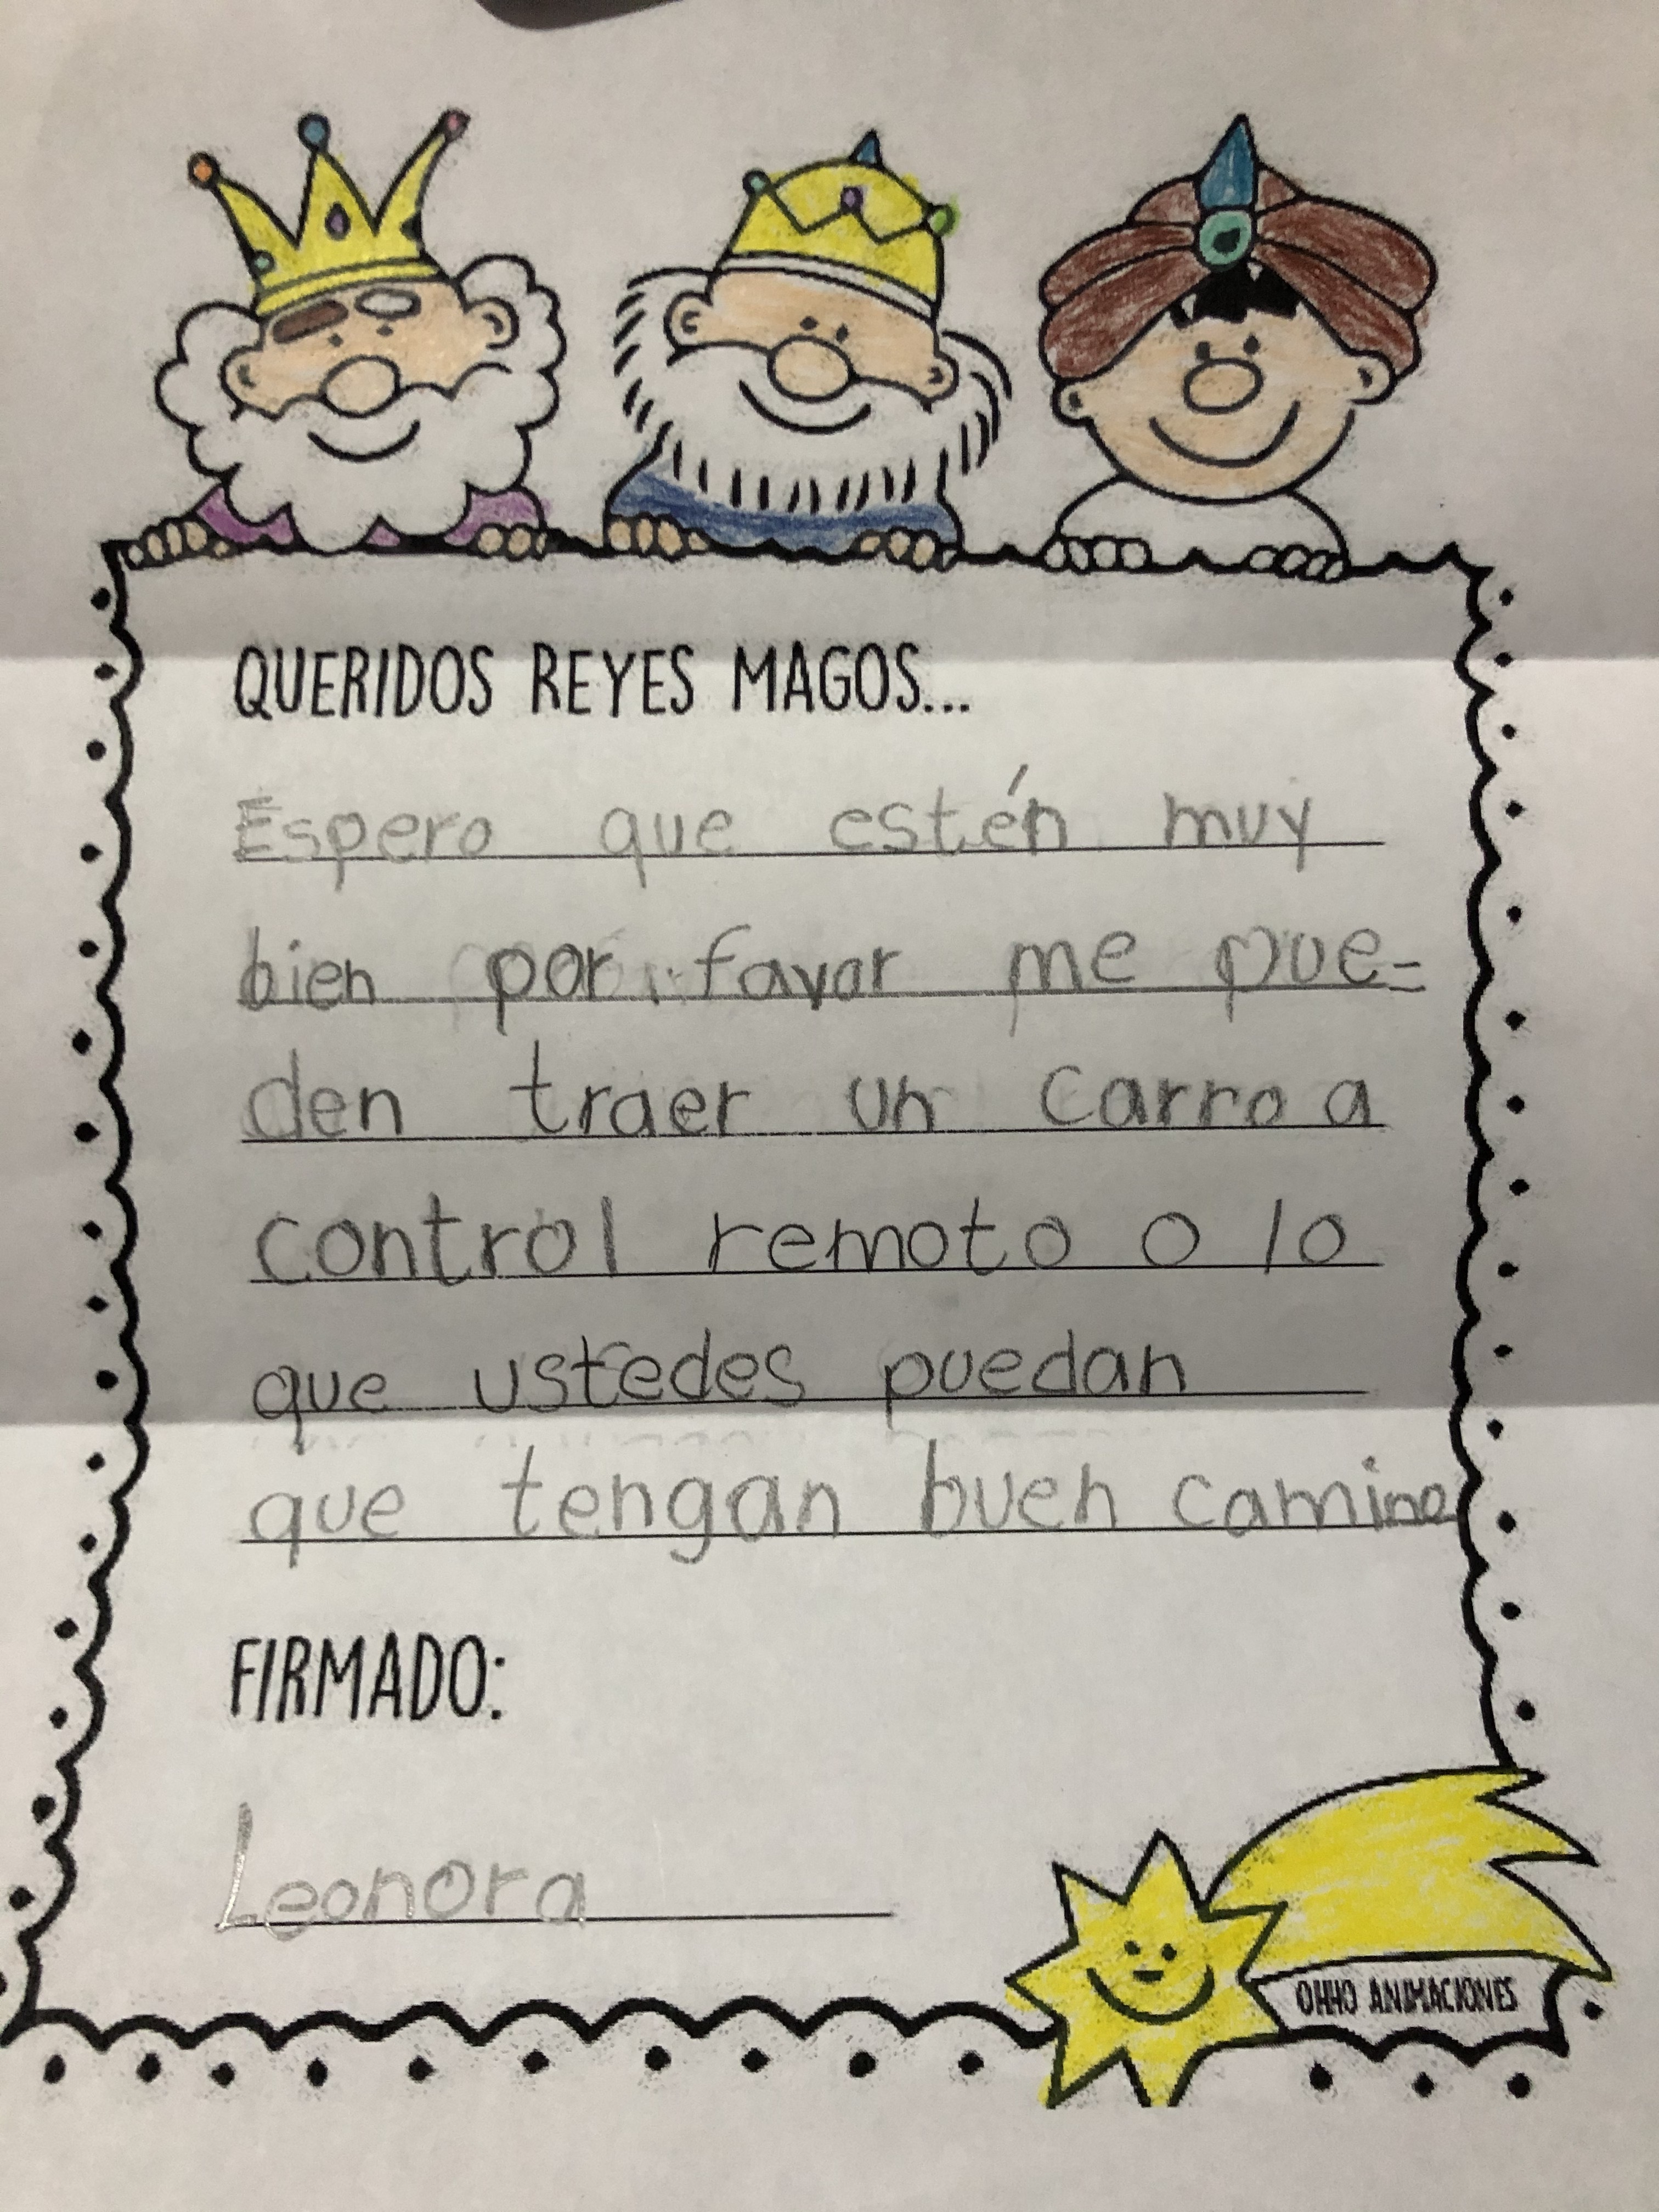 QUERIDOS REYES MAGOS...
Espero que estén muy
bien por favor me pue=
den traer un carro a
control remoto o lo
que ustedes puedan
que tengan buen camino
FIRMADO:
Leonora
OHHO ANIMACIONES